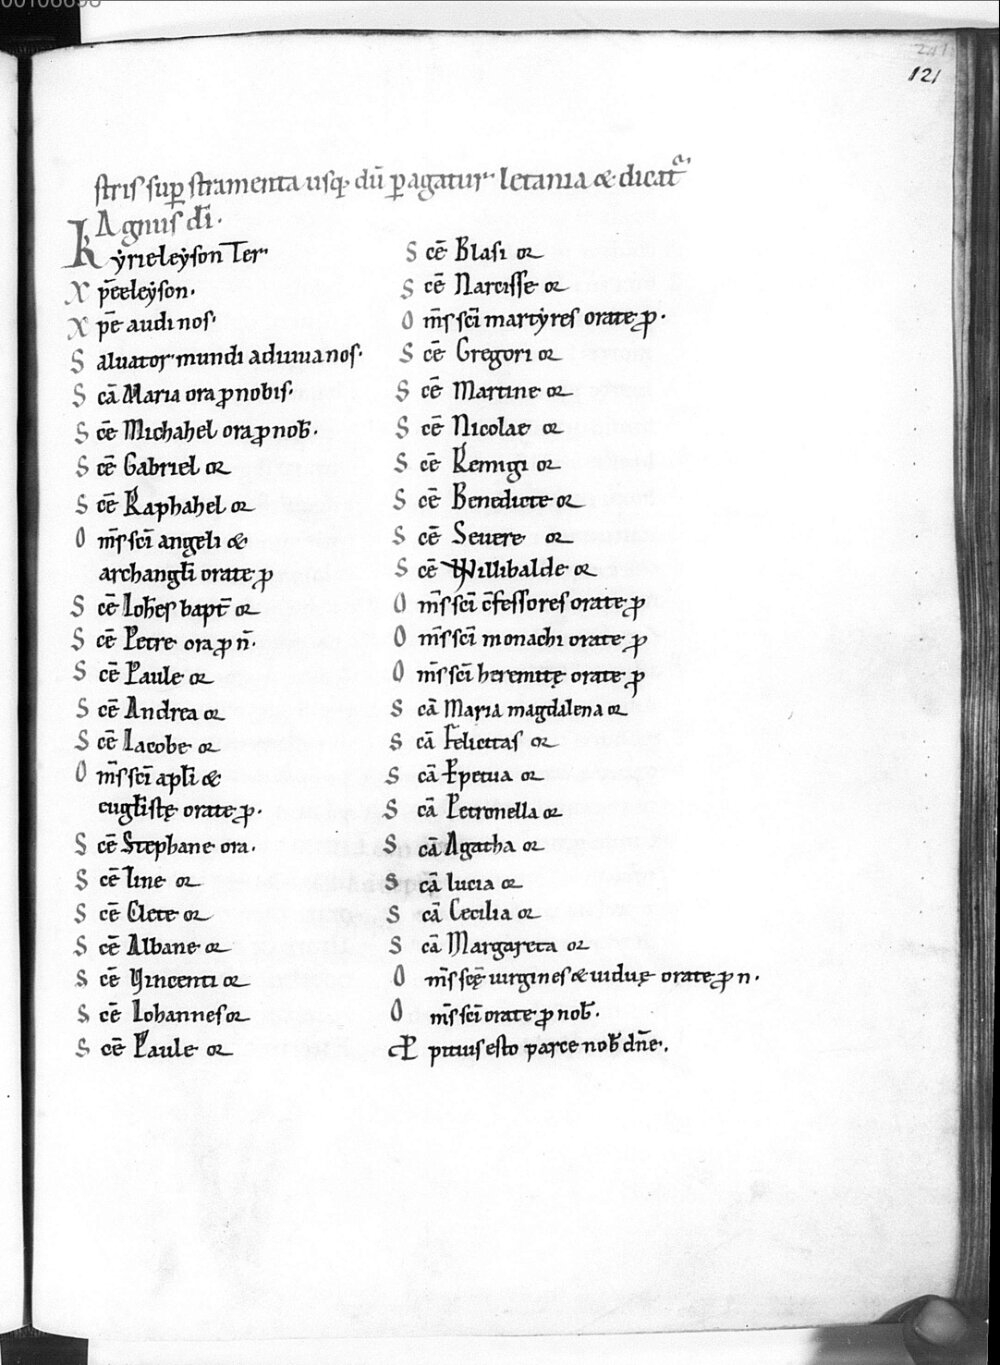 121
stris sup̄ stramenta usq; dū p̄agatur letania & dicat᷑
Agnus dī.
Kẏrieleẏson Ter
Xp̄eeleẏson.
Xp̄e audi nos.
Saluator mundi adiuua nos.
Scā Maria ora ꝓ nobis.
Scē Michahel ora ꝓ nob̄.
Scē Gabriel oꝛ
Scē Raphahel oꝛ
Om̄s sc̄i angeli &
archangl̄i orate ꝓ
Scē Ioh̄es bapt̄ oꝛ
Scē Petre ora ꝓ n̄.
Scē Paule oꝛ
Scē Andrea oꝛ
Scē Iacobe oꝛ
Om̄s sc̄i apl̄i &
eugl̄istę orate ꝓ.
Scē Stephane ora.
Scē Line oꝛ
Scē Clete oꝛ
Scē Albane oꝛ
Scē Vincenti oꝛ
Scē Iohannes oꝛ
Scē Paule oꝛ
Scē Blasi oꝛ
Scē Narcisse oꝛ
Om̄s sc̄i martẏres orate ꝓ.
Scē Gregori oꝛ
Scē Martine oꝛ
Scē Nicolae oꝛ
Scē Remigi oꝛ
Scē Benedicte oꝛ
Scē Seuere oꝛ
Scē Willibalde oꝛ
Om̄s sc̄i c̄fessores orate ꝓ
Om̄s sc̄i monachi orate ꝓ
Om̄s sc̄i heremitę orate ꝓ
Scā Maria magdalena oꝛ
Scā Felicitas oꝛ
Scā Ꝑpetua oꝛ
Scā Petronella oꝛ
Scā Agatha oꝛ
Scā Lucia oꝛ
Scā Cecilia oꝛ
Scā Margareta oꝛ
Om̄s sc̄ę uirgines & uiduę orate ꝓ n.
Om̄s sc̄i orate ꝓ nob̄.
Ꝓpitius esto parce nob̄ dn̄e.